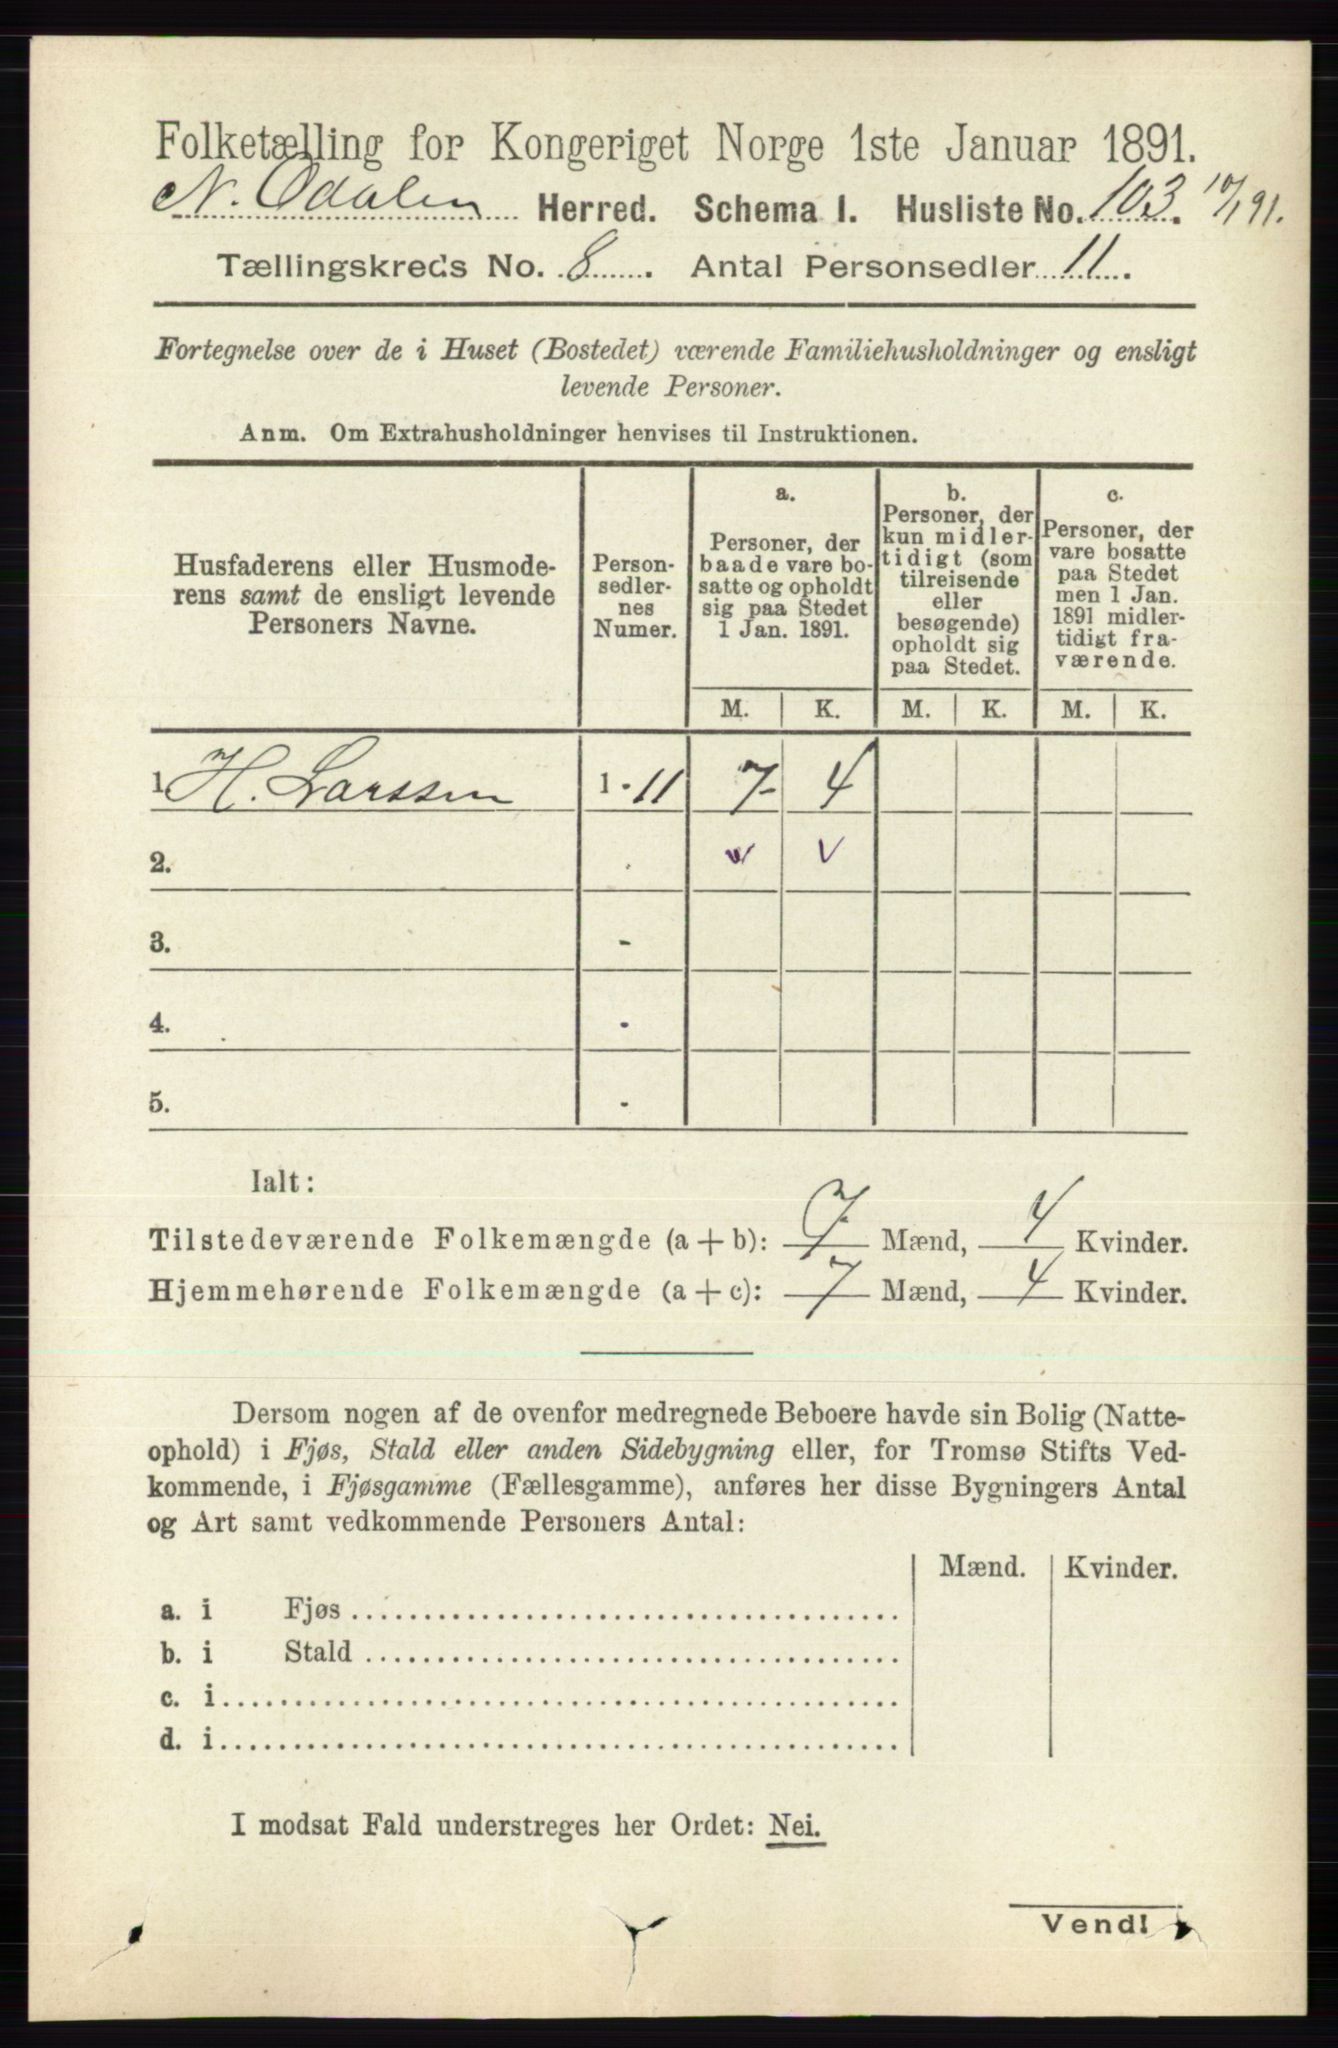 Folketælling for Kongeriget Norge 1ste Januar 1891.
N. Odalen Herred. Schema I. Husliste No. 103. 10/1 91.
Tællingskreds No. 8. Antal Personsedler 11.
Fortegnelse over de i Huset (Bostedet) værende Familiehusholdninger og ensligt
levende Personer.
Anm. Om Extrahusholdninger henvises til Instruktionen.
Husfaderens eller Husmode-
rens samt de ensligt levende
Personers Navne.
Person-
sedler-
nes
Numer.
a.
Personer, der
baade vare bo-
satte og opholdt
sig paa Stedet
1 Jan. 1891.
b.
Personer, der
kun midler-
tidigt (som
tilreisende
eller
besøgende)
opholdt sig
paa Stedet.
c.
Personer, der
vare bosatte
paa Stedet
men 1 Jan.
1891 midler-
tidigt fra-
værende.
M. K. M. K. M. K.
1. H. Larssen 1 - 11 7 4
2. v v
3. -
4. -
5. -
Ialt:
Tilstedeværende Folkemængde (a + b): 7 Mænd, 4 Kvinder.
Hjemmehørende Folkemængde (a + c): 7 Mænd, 4 Kvinder.
Dersom nogen af de ovenfor medregnede Beboere havde sin Bolig (Natte-
ophold) i Fjøs, Stald eller anden Sidebygning eller, for Tromsø Stifts Ved-
kommende, i Fjøsgamme (Fællesgamme), anføres her disse Bygningers Antal
og Art samt vedkommende Personers Antal:
Mænd. Kvinder.
a. i Fjøs
b. i Stald
c. i
d. i
I modsat Fald understreges her Ordet: Nei.
Vend!